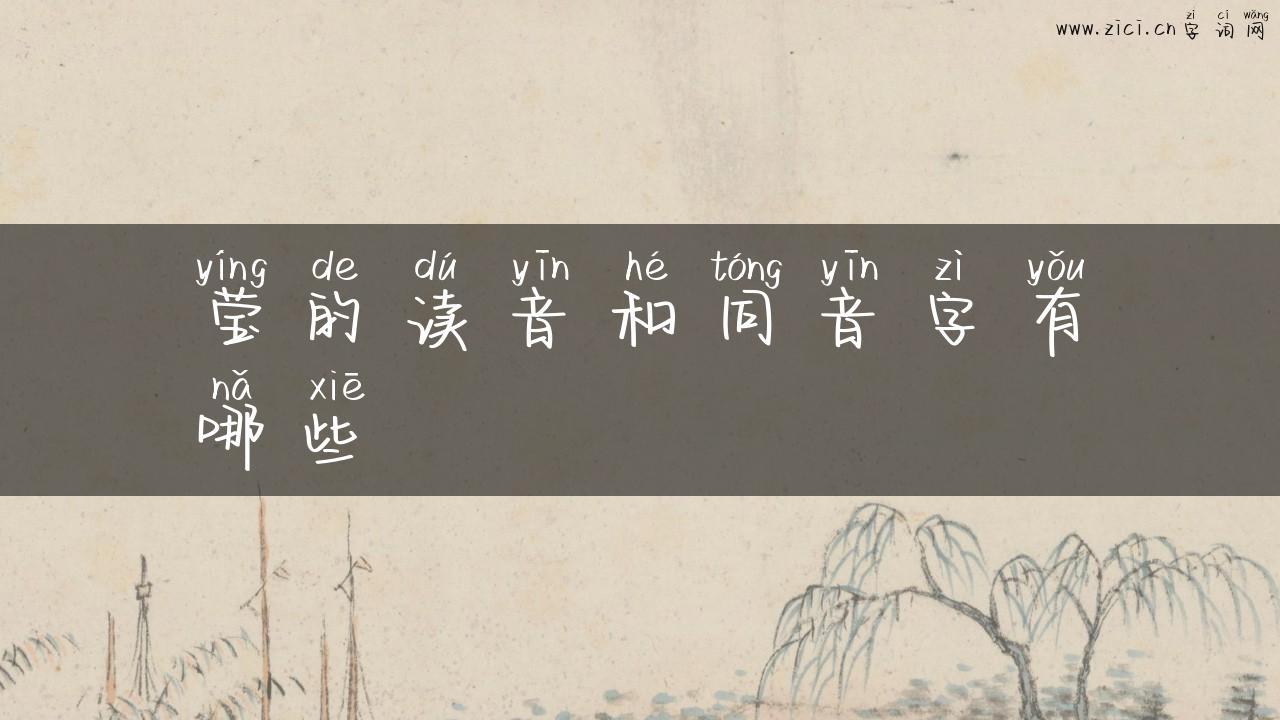 www.zici.cn 字词网
zì cí wǎng
yíng de dú yīn hé tóng yīn zì yǒu
莹的读音和同音字有
nǎ xiē
哪些